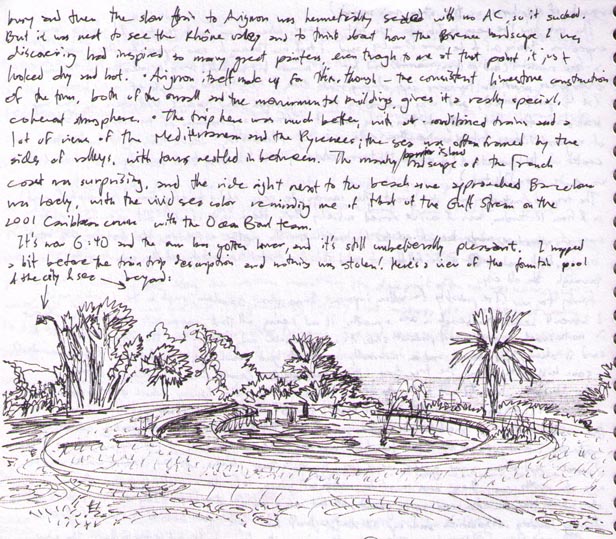 and then the slow train to Avignon was hermetically sealed with no AC, so it sucked.
But it was neat to see the Rhône valley and to think about how the Provence landscape I was
discovering had inspired so many great painters, even though to me at that point it just
looked dry and hot. • Avignon itself made up for this, though – the consistent limestone construction
of the town, both of the small and the monumental buildings, gives it a really special,
coherent atmosphere. • The trip here was much better, with air conditioned trains and a
lot of views of the Mediterranean and the Pyrenees; the sea was often framed by the
sides of valleys, with towns nestled in between. The landscape of the French
coast was surprising, and the ride right next to the beach as we approached Barcelona
was lovely, with the vivid sea color reminding me of that of the Gulf Stream on the
2001 Caribbean cruise with the Ocean Bowl team.
It's now 6:40 and the sun has gotten lower, and it's still unbelievably pleasant. I napped
a bit before the train trip description and nothing was stolen! Here's a view of the fountain pool
& the city & sea beyond: